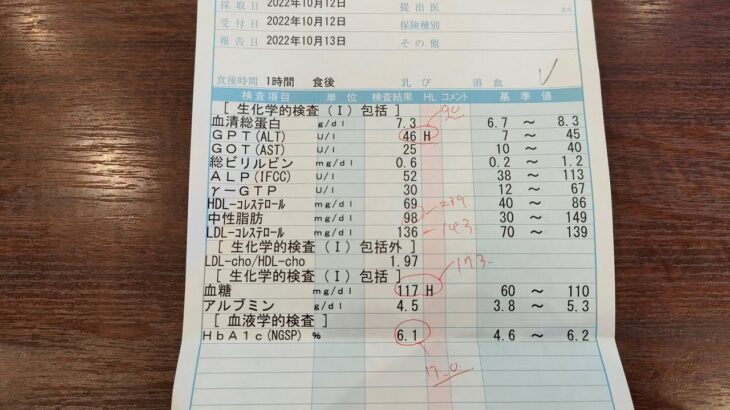 採取日 2022年10月12日 提出医
2022年10月12日 保険種別
報告日 2022年10月13日 その他
食後時間 1時間 食後 乳び 溶血
検査項目 単位 検査結果 HL コメント 基準値
[ 生化学的検査(Ⅰ)包括 ]
90
血清総蛋白 g/dl 7.3 6.7 ~ 8.3
GPT(ALT) U/l 46 H 7 ~ 45
GOT(AST) U/l 25 10 ~ 40
総ビリルビン mg/dl 0.6 0.2 ~ 1.2
ALP(IFCC) U/l 52 38 ~ 113
γ-GTP U/l 30 12 ~ 67
HDL-コレステロール mg/dl 69 40 ~ 86
中性脂肪 mg/dl 98 30 ~ 149
LDL-コレステロール mg/dl 136 143 70 ~ 139
[ 生化学的検査(Ⅰ)包括外 ]
LDL-cho/HDL-cho 1.97
[ 生化学的検査(Ⅰ)包括 ]
173
血糖 mg/dl 117 H 60 ~ 110
アルブミン g/dl 4.5 3.8 ~ 5.3
[ 血液学的検査 ]
HbA1c(NGSP) % 6.1 4.6 ~ 6.2